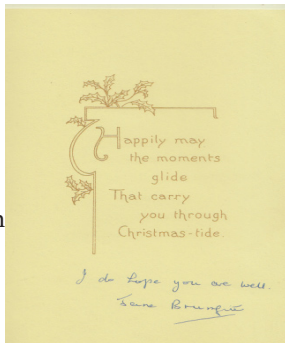 Happily may
the moments
glide
That carry
you through
Christmas-tide.
I do hope you are well.